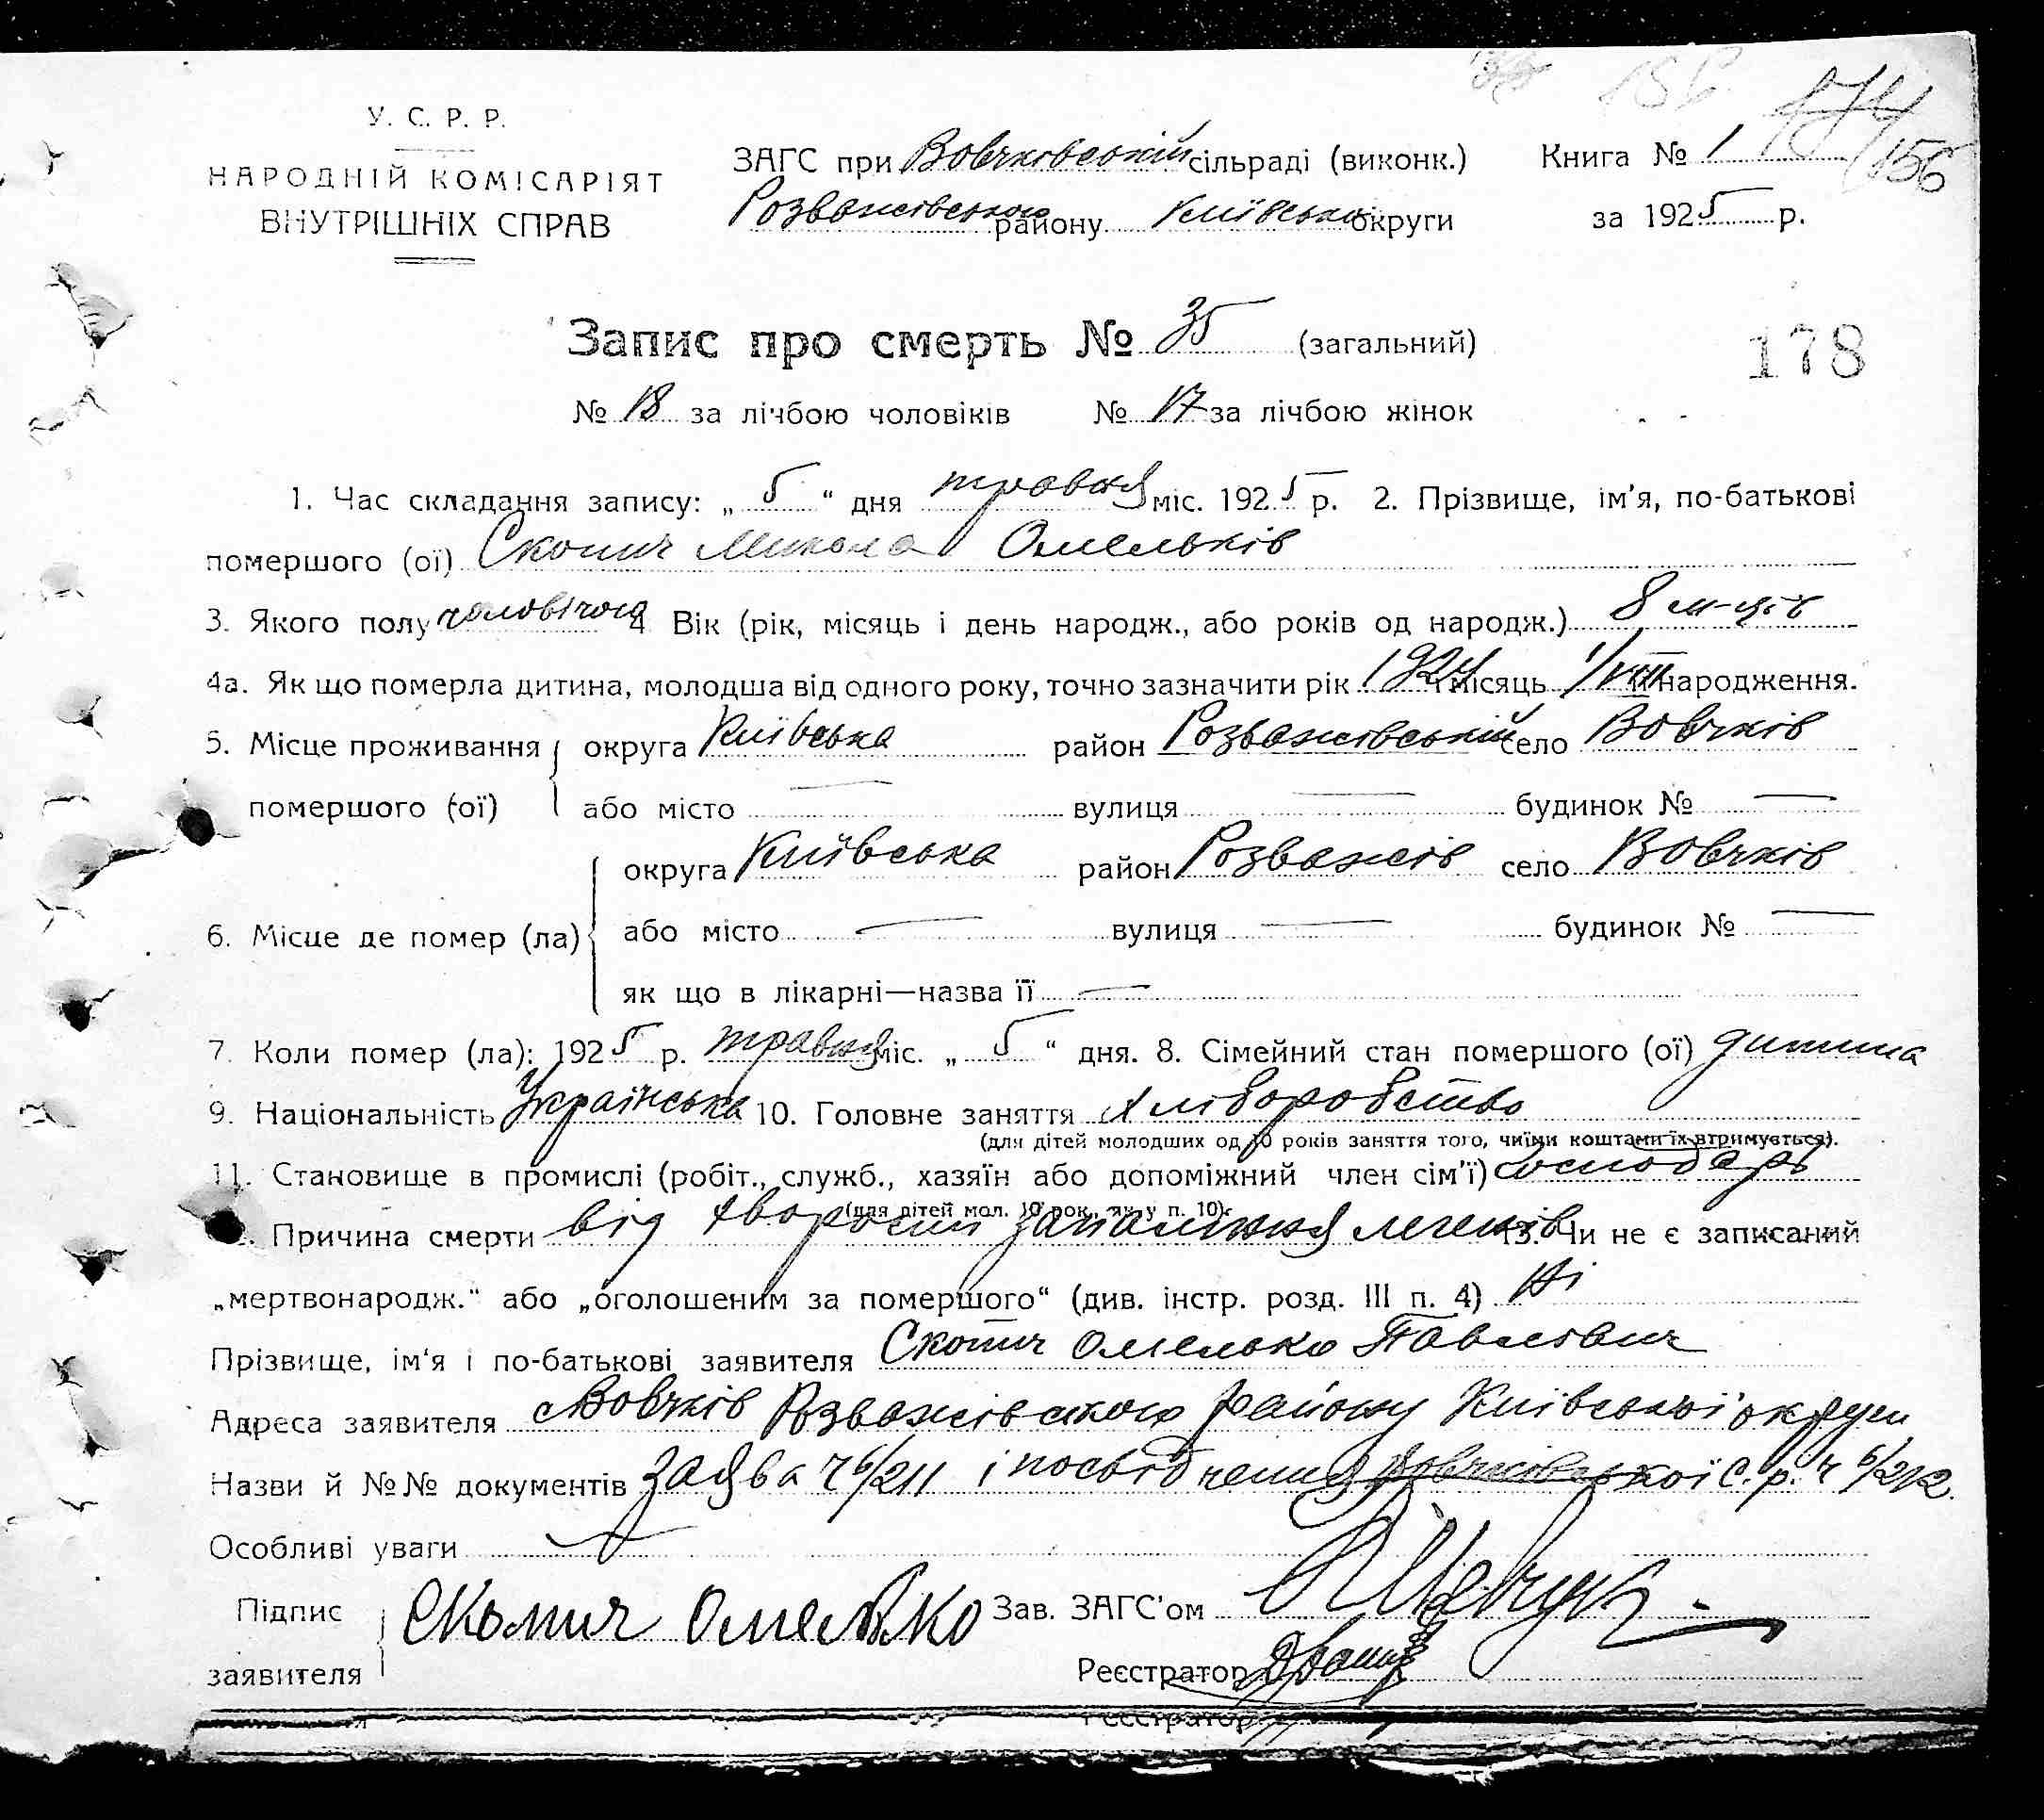 156
174/156
У. С. Р. Р.
НАРОДНІЙ КОМІСАРІЯТ
ВНУТРІШНІХ СПРАВ
ЗАГС при Вовчковській сільраді (виконк.) Книга № 1
Розважівського району Київської округи за 1925 р.
Запис про смерть № 35 (загальний)
178
№ 18 за лічбою чоловіків № 17 за лічбою жінок
1. Час складання запису: „ 5 “ дня травня міс. 1925 р. 2. Прізвище, ім'я, по-батькові
помершого (ої) Скопич Микола Омельків
3. Якого полу чоловічого 4 Вік (рік, місяць і день народж., або років од народж.) 8 м-ців
4а. Як що померла дитина, молодша від одного року, точно зазначити рік 1924 місяць 1/VIII народження.
5. Місце проживання округа Київська район Розважівський село Вовчків
помершого (ої) або місто — вулиця — будинок № —
округа Київська район Розважів село Вовчків
6. Місце де помер (ла) або місто — вулиця — будинок № —
як що в лікарні—назва її —
7. Коли помер (ла): 1925 р. травня міс. „ 5 “ дня. 8. Сімейний стан помершого (ої) дитина
9. Національність Українська 10. Головне заняття Хліборобство
(для дітей молодших од 10 років заняття того, чиїми коштами їх втримується).
11. Становище в промислі (робіт., служб., хазяїн або допоміжний член сім'ї) Господарь
(для дітей мол. 10 рок., як у п. 10).
Причина смерти від хвороби запалення легенів 13. Чи не є записаний
„мертвонародж.“ або „оголошеним за помершого“ (див. інстр. розд. III п. 4) Ні
Прізвище, ім'я і по-батькові заявителя Скопич Омелько Павлович
Адреса заявителя Вовчків Розважівського району Київської округи
Назви й №№ документів Заява Ч 6/211 і посвідчення Вовчківської С. р. Ч 6/212.
Особливі уваги
Підпис заявителя Скопич Омелько Зав. ЗАГС'ом
Реєстратор
Реєстратор